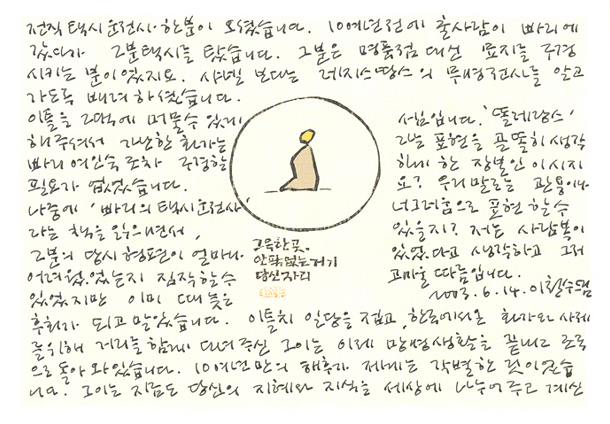 전직 택시운전사 한분이 오셨습니다. 10여년전에 촌사람이 빠리에
갔다가 그분택시를 탔습니다. 그분은 명품점 대신 묘지를 구경
시키는 분이었지요. 샤넬 보다는 레지스땅스의 무명전사를 알고
가도록 배려하셨습니다.
이틀을 그댁에 머물수 있게
해주셔서 가난한 화가는
빠리 여인숙조차 구경할
필요가 없었습니다.
나중에 '빠리의 택시운전사'
라는 책을 읽으면서,
그분의 당시 형편이 얼마나
어려웠었는지 짐작할수
있었지만 이미 때늦은
후회가 되고 말았습니다. 이틀치 일당을 접고, 한국에서온 화가와 사제
를위해 거리를 함께 다녀주신 그이는 이제 망명생활을 끝내고 조국
으로 돌아와 있습니다. 10여년만의 해후가 제게는 각별한 것이었습
니다. 그이는 지금도 당신의 지혜와 지식을 세상에 나누어주고 계신
'똘레랑스'
라는 표현을 골똘히 생각
하게 한 장본인이시지
요? 우리말로는 관용이나
너그러움으로 표현할수
있을지? 저는 사람복이
있었다고 생각하고 그저
고마울 따름입니다.
2003.6.14. 이철수드림
고독한 곳,
안팎없는 거기
당신자리